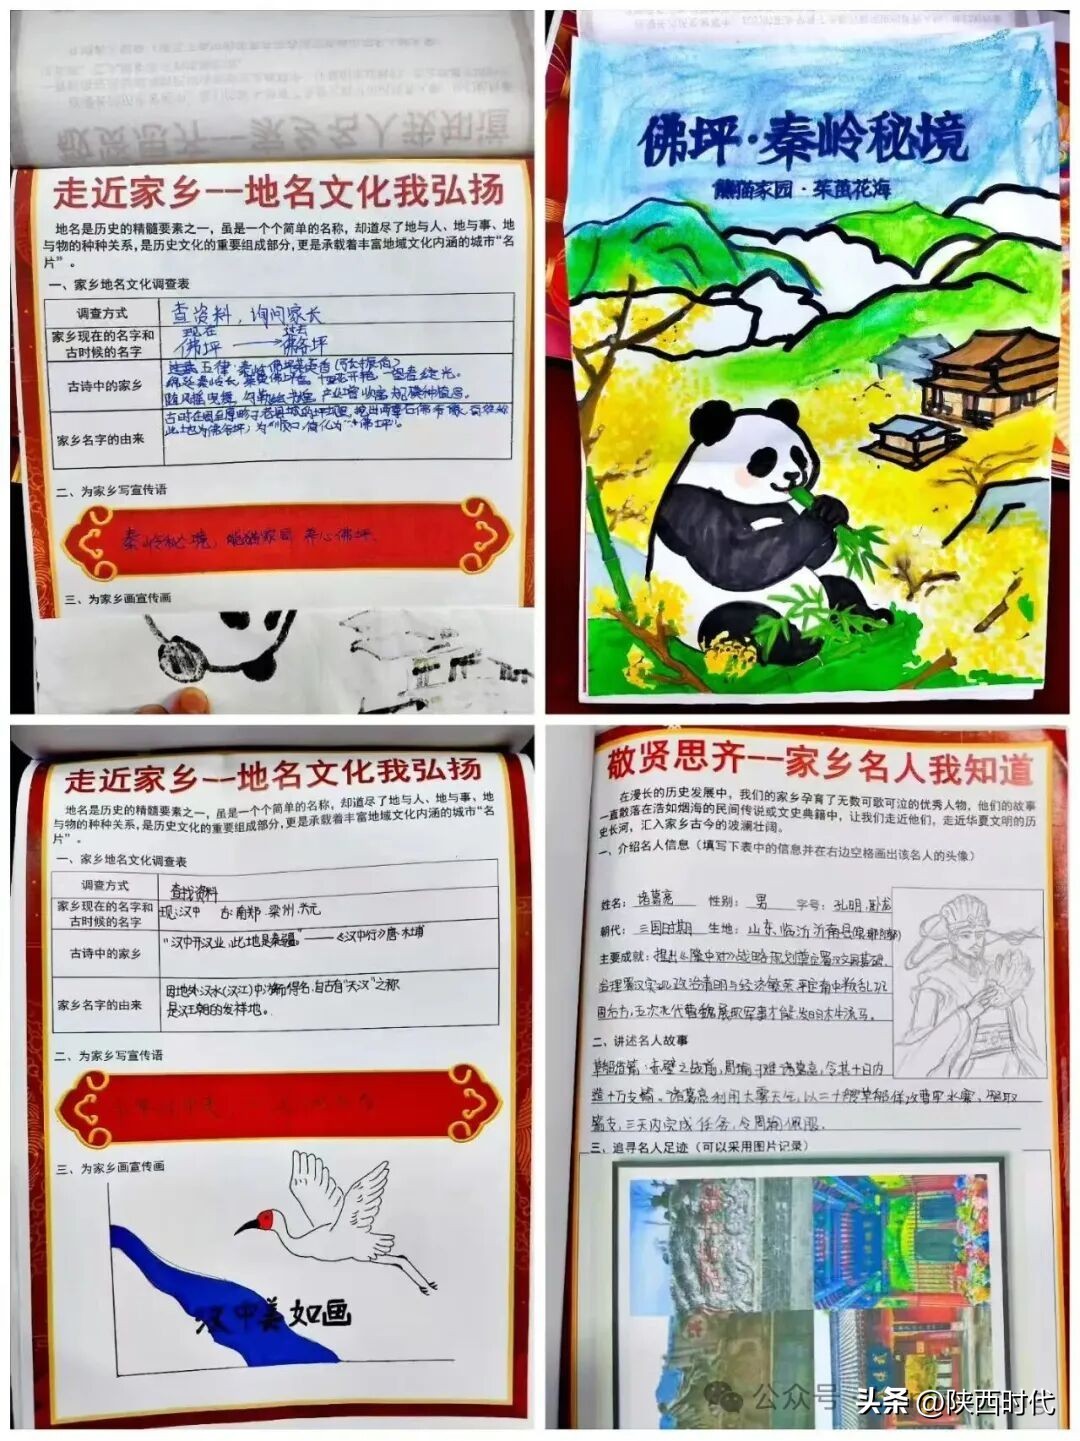 走近家乡--地名文化我弘扬
地名是历史的精髓要素之一，虽是一个个简单的名称，却道尽了地与人、地与事、地
与物的种种关系，是历史文化的重要组成部分，更是承载着丰富地域文化内涵的城市“名
片”。
一、家乡地名文化调查表
调查方式
查资料，询问家长
家乡现在的名字和
古时候的名字
现在 过去
佛坪 → 佛爷坪
古诗中的家乡
家乡名字的由来
二、为家乡写宣传语
秦岭秘境，熊猫家园 养心佛坪
三、为家乡画宣传画
佛坪·秦岭秘境
熊猫家园·茱萸花海
走近家乡--地名文化我弘扬
地名是历史的精髓要素之一，虽是一个个简单的名称，却道尽了地与人、地与事、地
与物的种种关系，是历史文化的重要组成部分，更是承载着丰富地域文化内涵的城市“名
片”。
一、家乡地名文化调查表
调查方式
查找资料
家乡现在的名字和
古时候的名字
现:汉中 古:南郑·梁州·兴元
古诗中的家乡
家乡名字的由来
因地处汉水(汉江)中游而得名，自古有“天汉”之称
是汉王朝的发祥地。
二、为家乡写宣传语
三、为家乡画宣传画
汉中美如画
敬贤思齐--家乡名人我知道
在漫长的历史发展中，我们的家乡孕育了无数可歌可泣的优秀人物，他们的故事
一直散落在浩如烟海的民间传说或文史典籍中，让我们走近他们，走近华夏文明的历
史长河，汇入家乡古今的波澜壮阔。
一、介绍名人信息（填写下表中的信息并在右边空格画出该名人的头像）
姓名：诸葛亮 性别：男 字号：孔明，卧龙
朝代：三国时期 生地：山东临沂沂南县
主要成就：提出《隆中对》战略规划奠定蜀汉立国基础，
治理蜀汉实现政治清明与经济繁荣，平定南中叛乱巩
固后方，五次北伐曹魏展现军事才能，发明木牛流马。
二、讲述名人故事
草船借箭：赤壁之战前，周瑜刁难诸葛亮，令其十日内
造十万支箭。诸葛亮利用大雾天气，以二十艘草船佯攻曹军水寨，骗取
箭支，三天内完成任务，令周瑜佩服。
三、追寻名人足迹（可以采用图片记录）
公众号
头条 @陕西时代